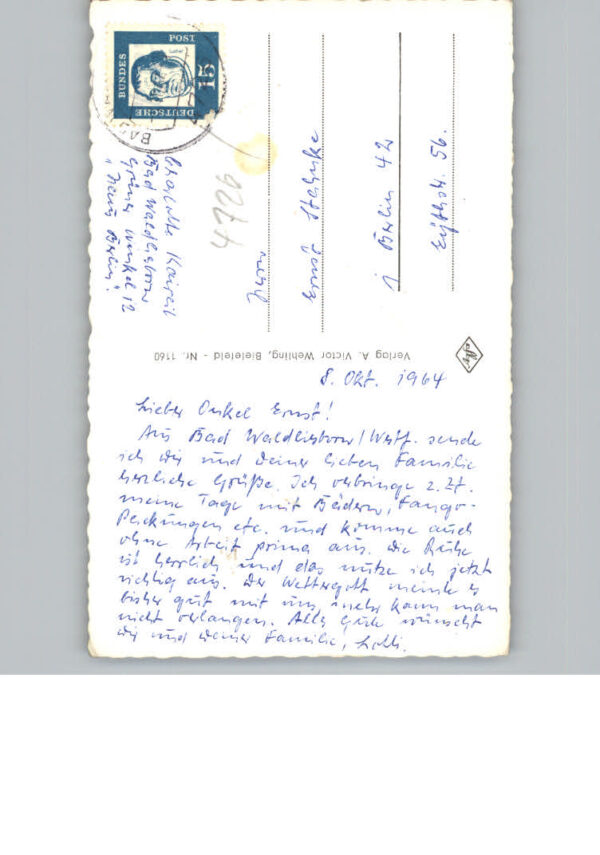 8. Okt. 1964
Lieber Onkel Ernst!
Aus Bad Waldliesborn/Westf. sende
ich Dir und Deiner lieben Familie
herzliche Grüße. Ich verbringe z. Zt.
meine Tage mit Bädern, Fango-
Packungen etc. und komme auch
ohne Arbeit prima aus. Die Ruhe
ist herrlich und das nutze ich jetzt
richtig aus. Der Wettergott meinte es
bisher gut mit uns, mehr kann man
nicht verlangen. Alles Gute wünscht
Dir und Deiner Familie, Lotti.
Verlag A. Victor Wehling, Bielefeld - Nr. 1160
Charlotte
Bad Waldliesborn
Grüner Winkel 12
"Haus Berlin"
4226
Herrn
Ernst
1 Berlin 42
56.
DEUTSCHE
BUNDES
POST
15